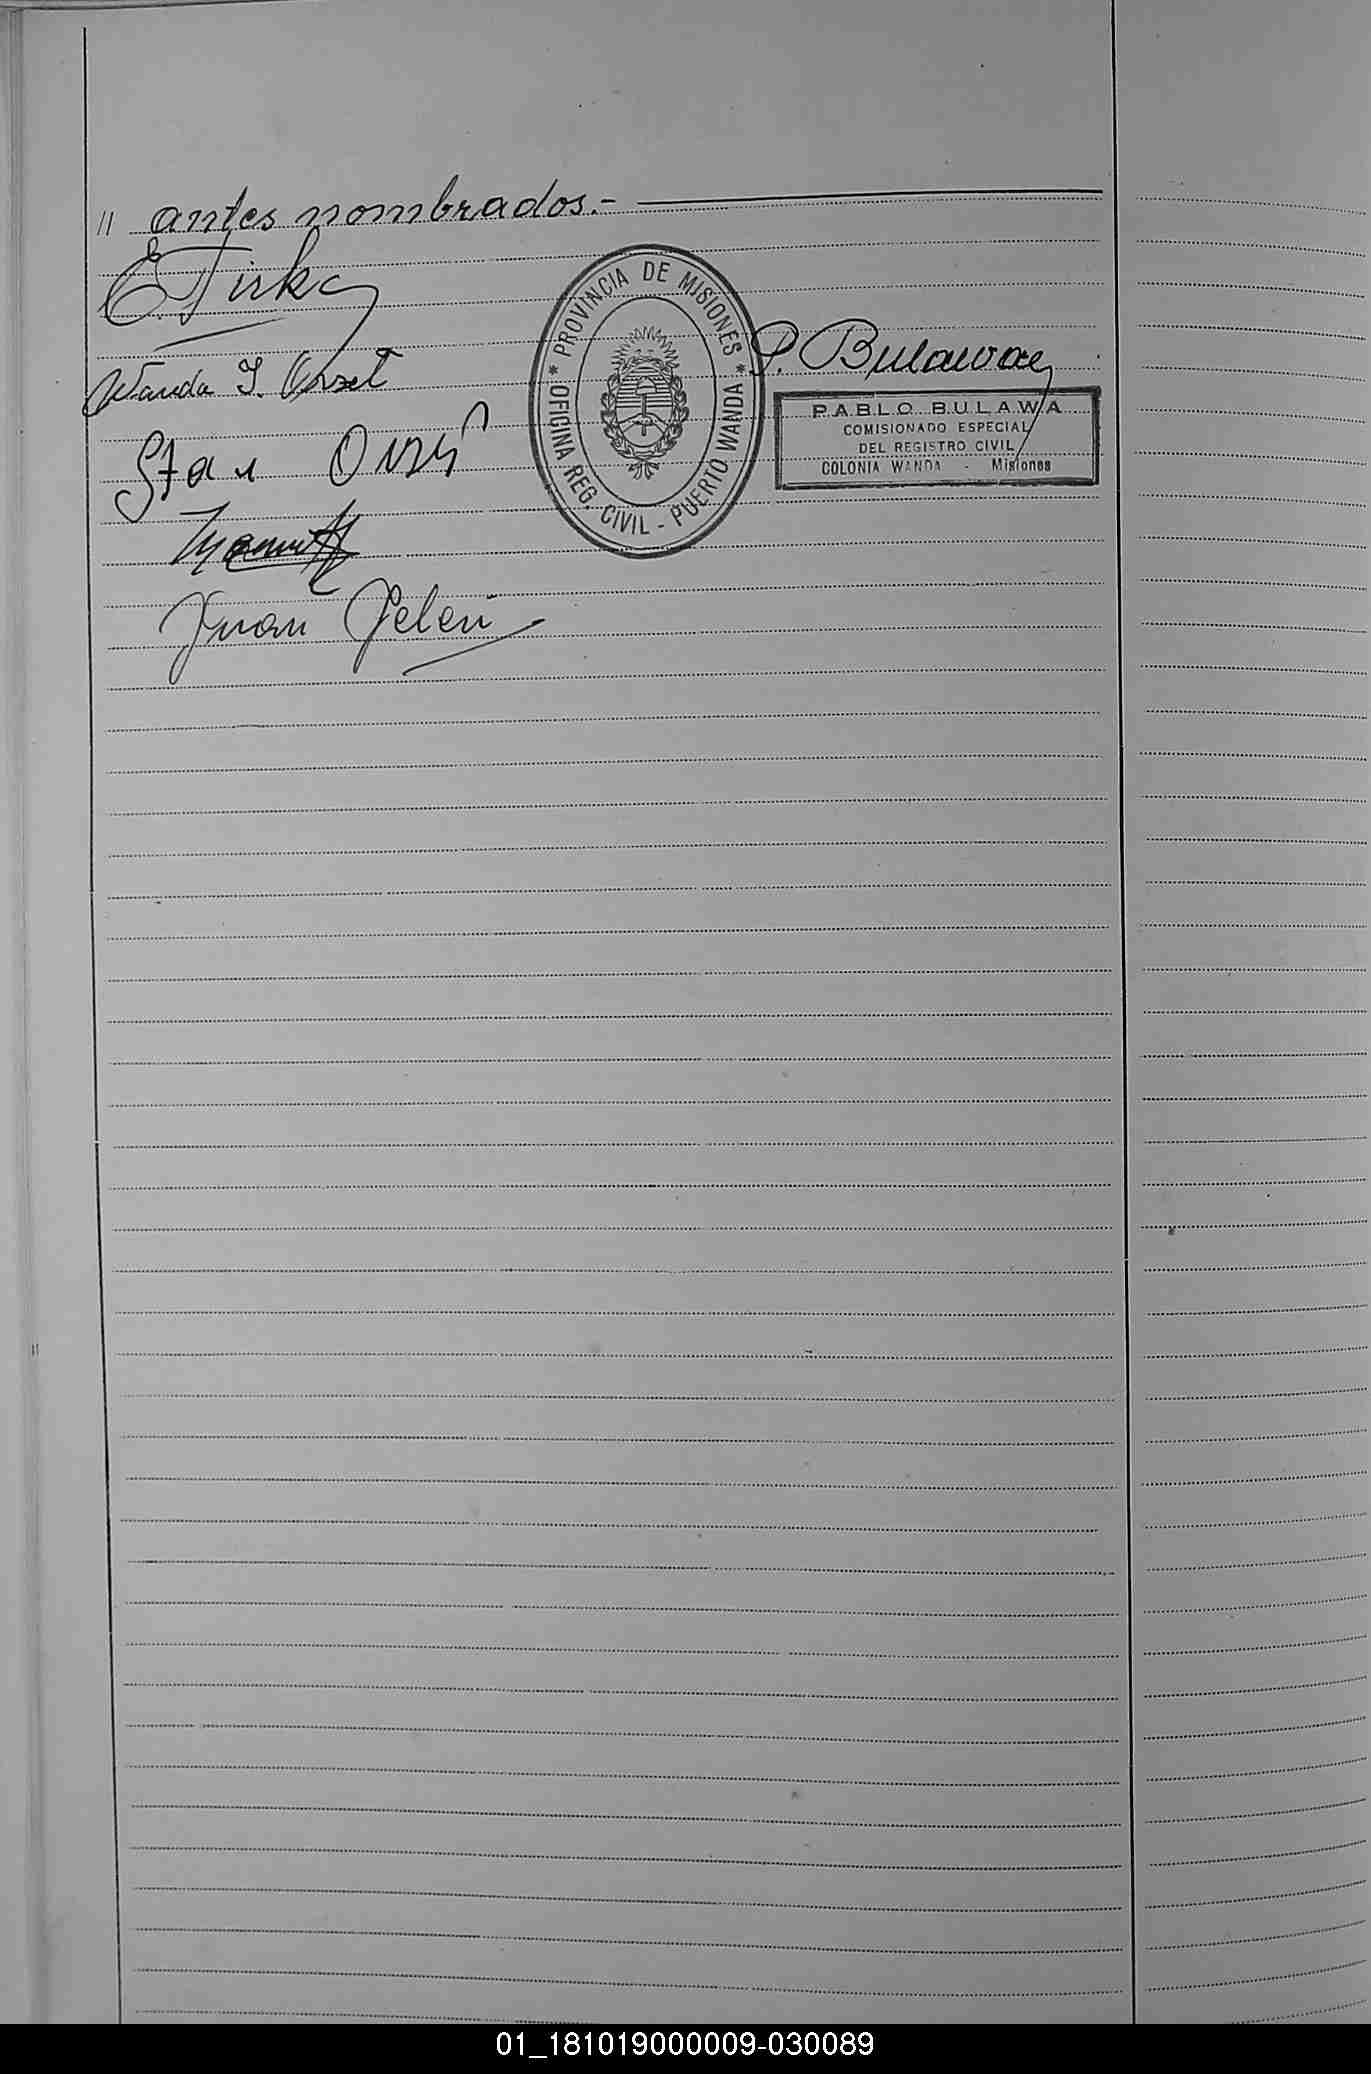 " antes nombrados.-
E. Tirka
Wanda I. Orzet
Stan
Juan Jeleń
* PROVINCIA DE MISIONES *
OFICINA REG. CIVIL - PUERTO WANDA
P. Bulawa
PABLO BULAWA
COMISIONADO ESPECIAL
DEL REGISTRO CIVIL
COLONIA WANDA - Misiones
01_181019000009-030089